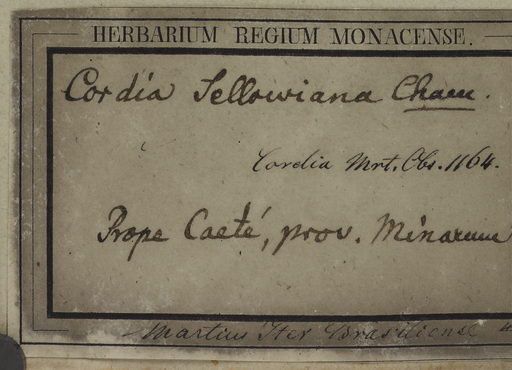 HERBARIUM REGIUM MONACENSE.
Cordia Sellowiana Cham.
Cordia Mrt. Obs. 1164.
Prope Caeté, prov. Minarum
Martius Iter Brasiliense